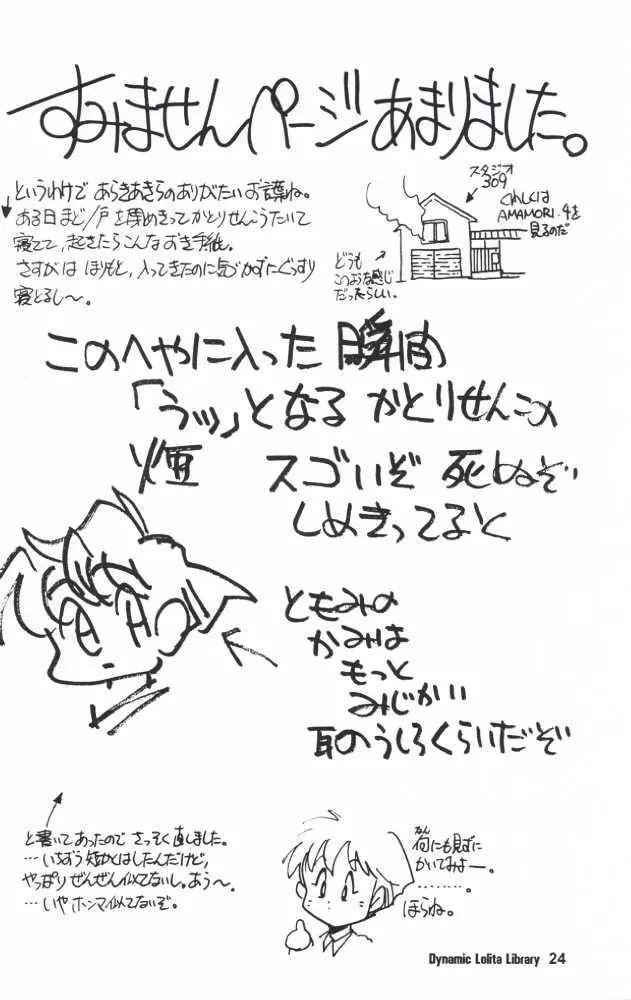 すみませんページあまりました。
というわけで あらきあきらのありがたいお言葉ね。
ある日まど/戸を閉めきってかとりせんこうたいて
寝てて、起きたらこんなおき手紙。
さすがは ほりもと、入ってきたのに気づかずにぐっすり
寝とるし〜。
スタジオ
309
くわしくは
AMAMORI.4を
見るのだ
どうも
このような感じ
だったらしい。
このへやに入った 瞬間
「うッ」となる かとりせんこの
煙 スゴいぞ 死ぬぞ
しめきってると
ともみの
かみは
もっと
みじかい
耳のうしろくらいだぞ
と書いてあったので さっそく直しました。
…いちおう短かくはしたんだけど、
やっぱりぜんぜん似てないし。あう〜。
…いやホンマ似てないぞ。
なん
何にも見ずに
かいてみよー。
………。
ほらね。
Dynamic Lolita Library 24